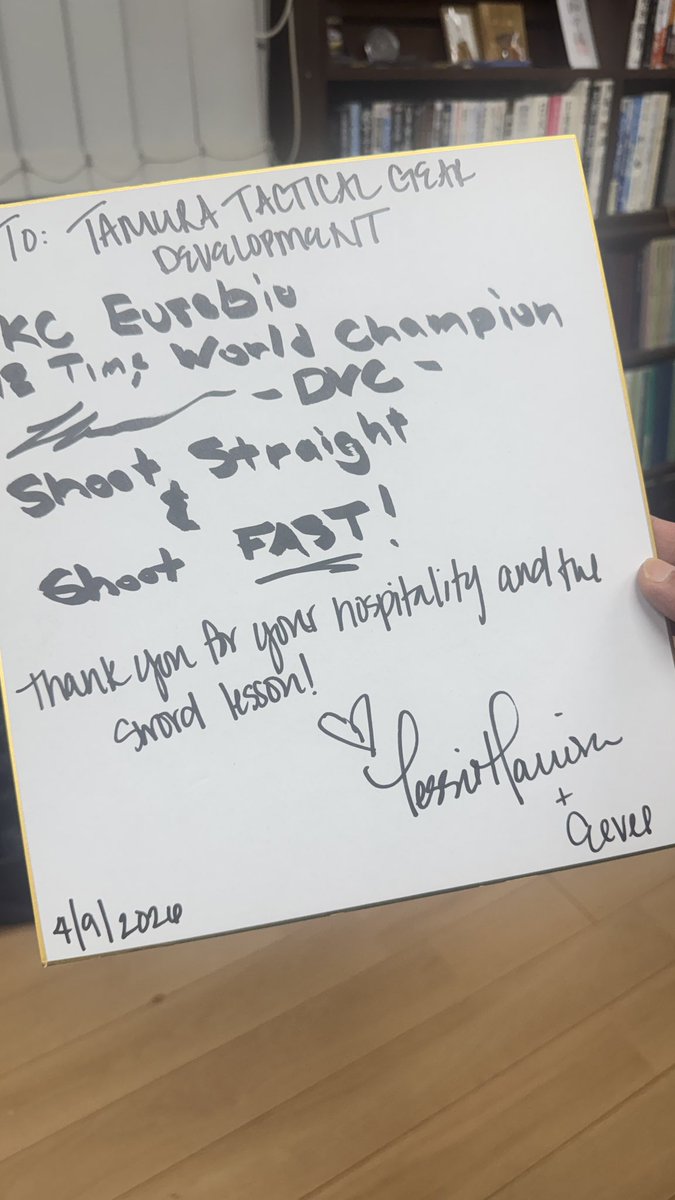 TO: TAMURA TACTICAL GEAR
DEVELOPMENT
KC Eusebio
18 Time World Champion
- DVC -
Shoot Straight
&
Shoot FAST!
Thank you for your hospitality and the
sword lesson!
Jessie Harrison
+
4/9/2026